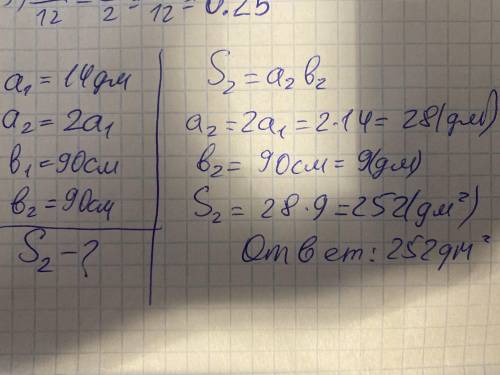 12 2 12 = 0.25
a₁ = 14дм
a₂ = 2a₁
в₁ = 90см
в₂ = 90см
S₂ - ?
S₂ = a₂ в₂
a₂ = 2a₁ = 2·14 = 28(дм)
в₂ = 90см = 9(дм)
S₂ = 28·9 = 252(дм²)
Ответ: 252дм²